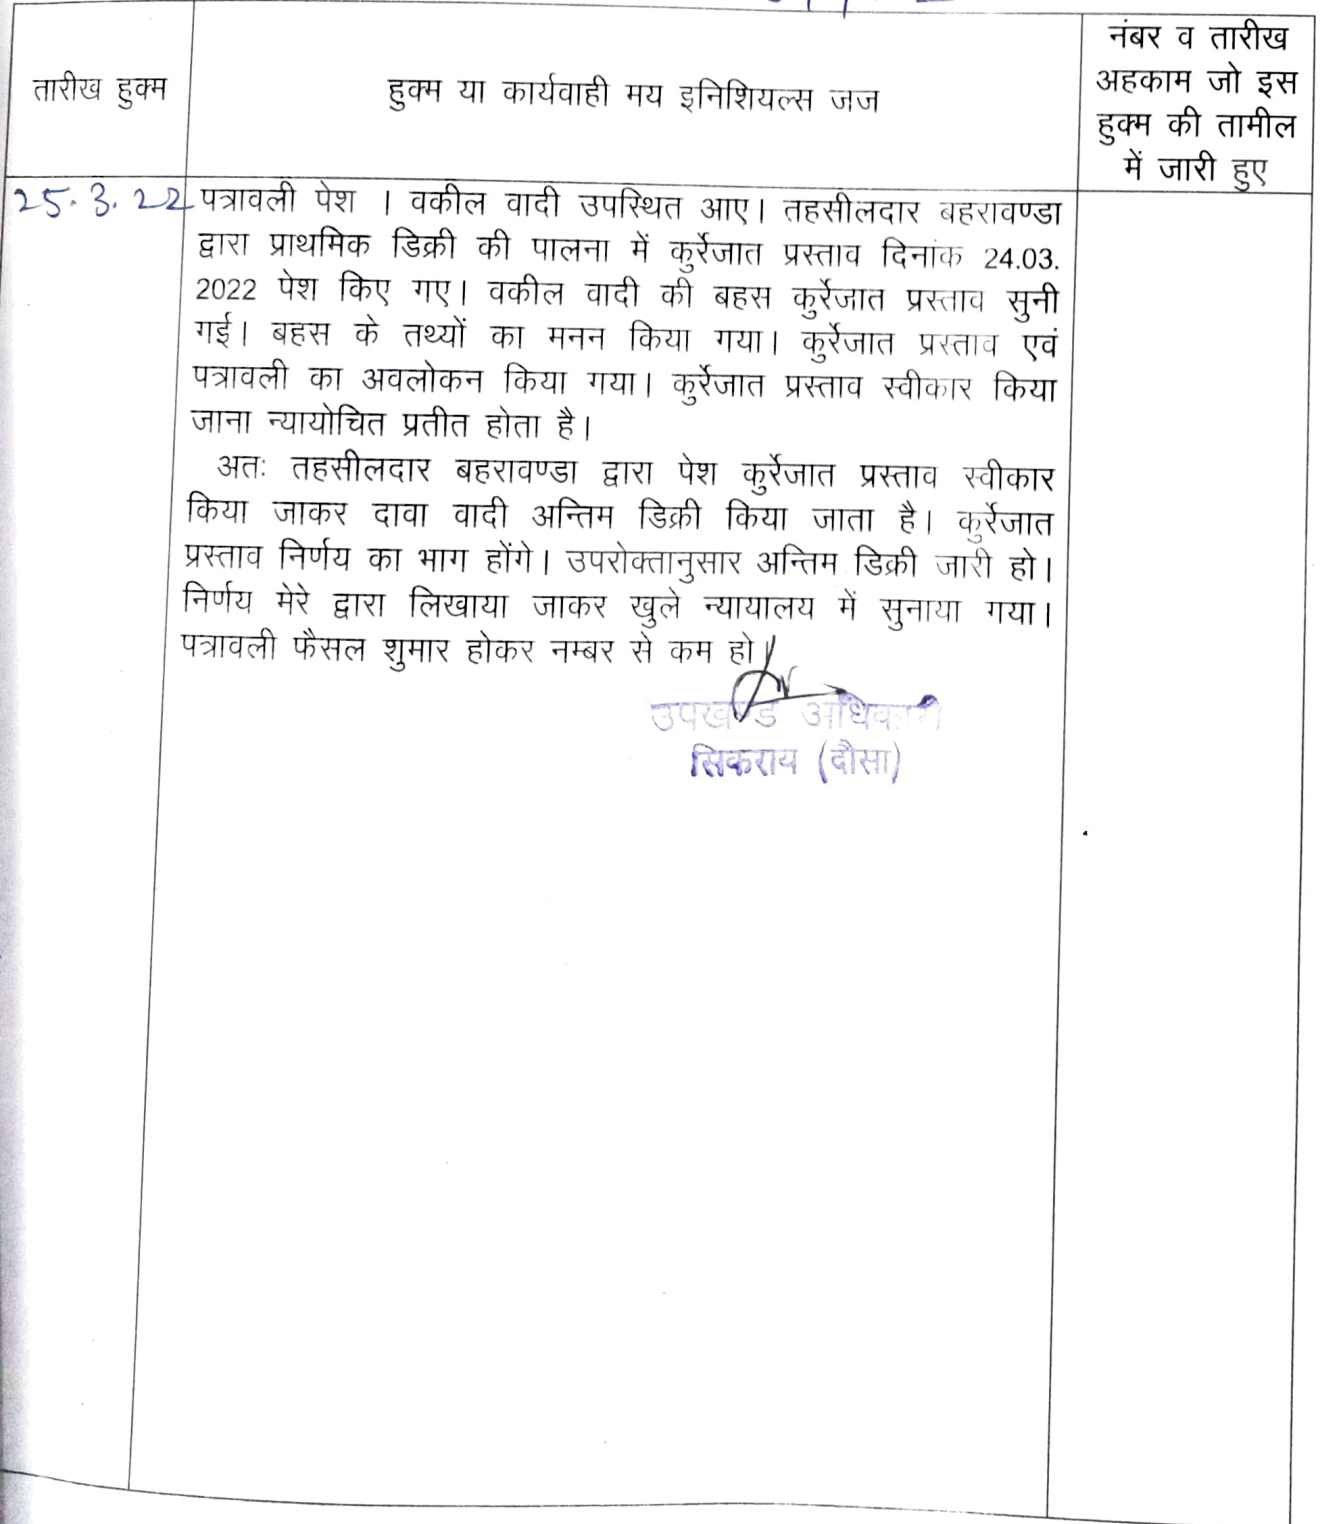 तारीख हुक्म
हुक्म या कार्यवाही मय इनिशियल्स जज
नंबर व तारीख
अहकाम जो इस
हुक्म की तामील
में जारी हुए
25.3.22
पत्रावली पेश । वकील वादी उपस्थित आए। तहसीलदार बहरावण्डा
द्वारा प्राथमिक डिक्री की पालना में कुर्रेजात प्रस्ताव दिनांक 24.03.
2022 पेश किए गए। वकील वादी की बहस कुर्रेजात प्रस्ताव सुनी
गई। बहस के तथ्यों का मनन किया गया। कुर्रेजात प्रस्ताव एवं
पत्रावली का अवलोकन किया गया। कुर्रेजात प्रस्ताव स्वीकार किया
जाना न्यायोचित प्रतीत होता है।
अतः तहसीलदार बहरावण्डा द्वारा पेश कुर्रेजात प्रस्ताव स्वीकार
किया जाकर दावा वादी अन्तिम डिक्री किया जाता है। कुर्रेजात
प्रस्ताव निर्णय का भाग होंगे। उपरोक्तानुसार अन्तिम डिक्री जारी हो।
निर्णय मेरे द्वारा लिखाया जाकर खुले न्यायालय में सुनाया गया।
पत्रावली फैसल शुमार होकर नम्बर से कम हो।
उपखण्ड अधिकारी
सिकराय (दौसा)